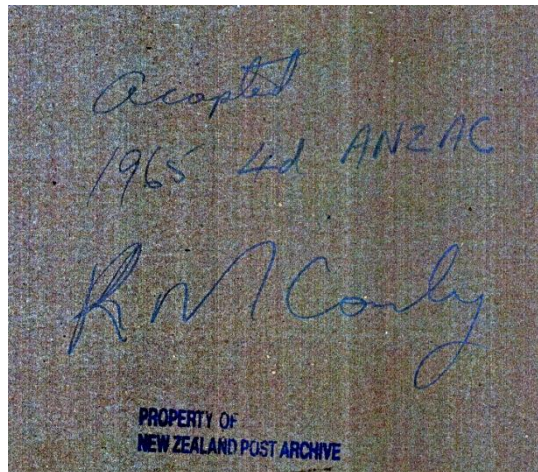 Acopted
1965 4d ANZAC
R M Conly
PROPERTY OF
NEW ZEALAND POST ARCHIVE